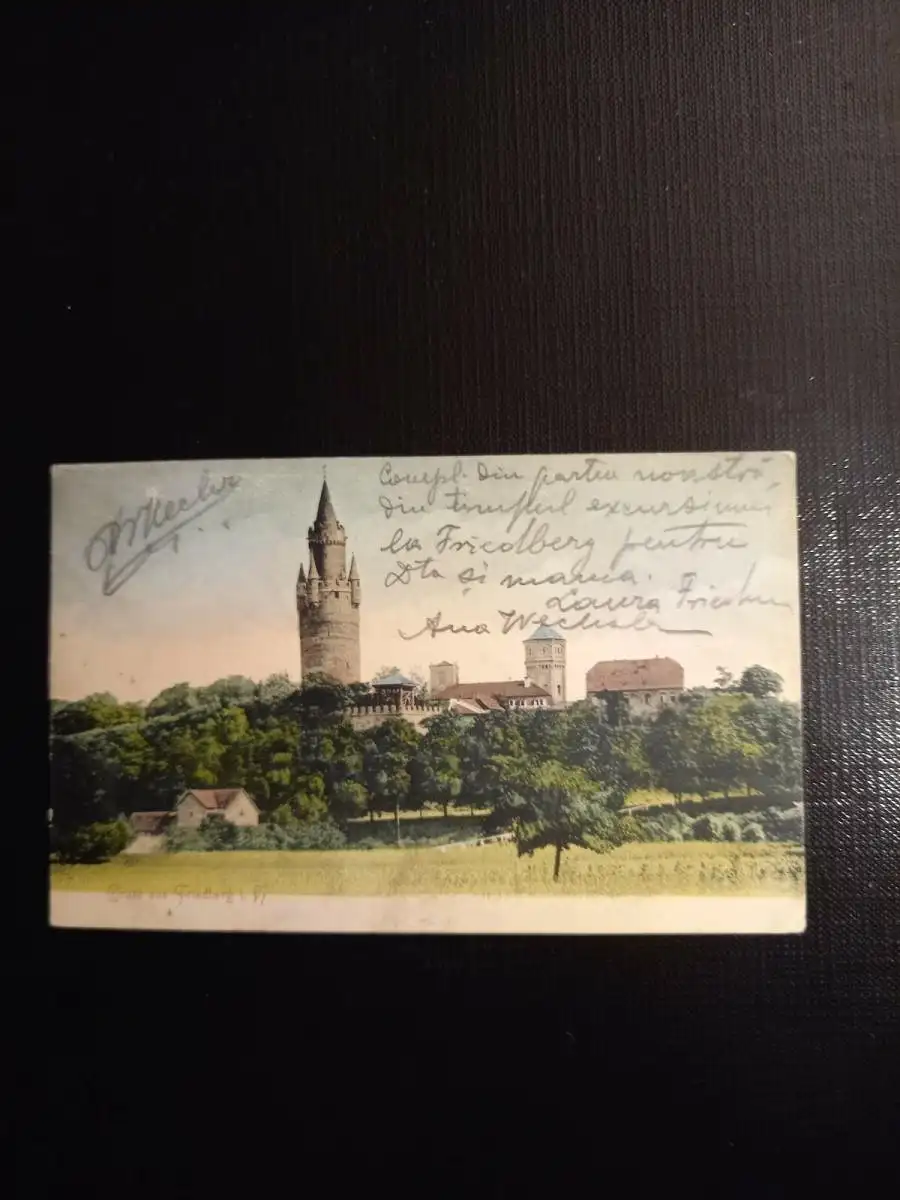 Compl. din partea noastră,
din timpul excursiunii
la Friedberg pentru
Dta și mama.
Laura
Ana Wechsler
Gruß aus Friedberg i. H.